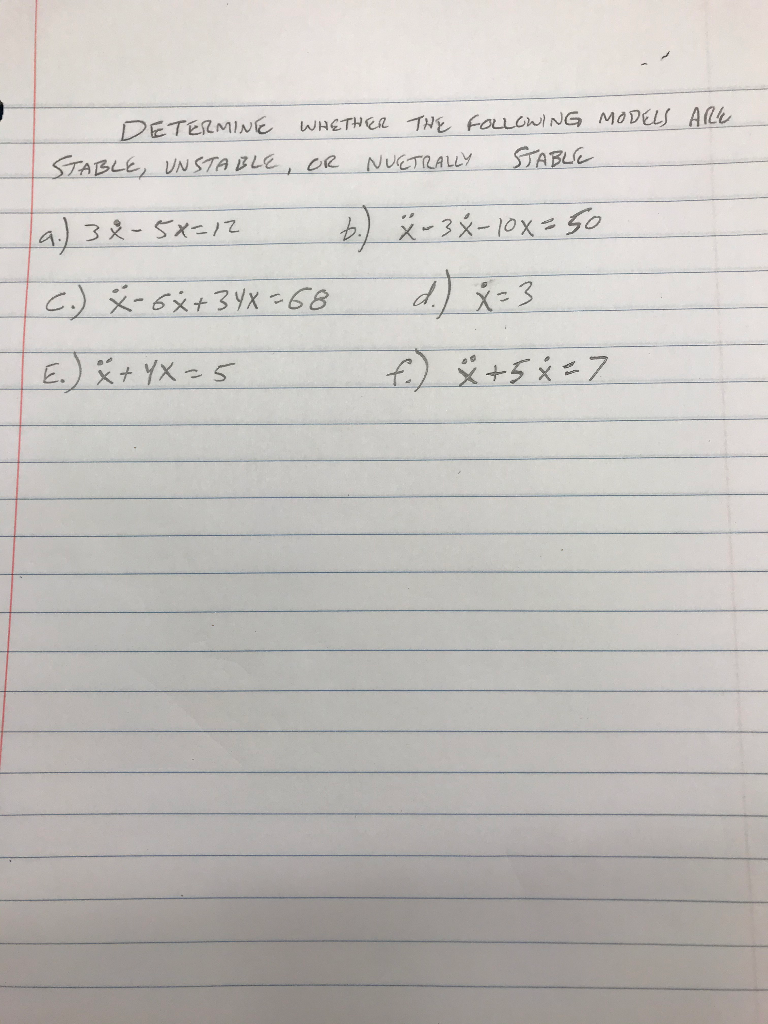 DETERMINE WHETHER THE FOLLOWING MODELS ARE
STABLE, UNSTABLE, OR NUETRALLY STABLE
a.) 3ẋ - 5x=12 b.) ẍ-3ẋ-10x=50
C.) ẍ-6ẋ+34x=68 d.) ẋ=3
E.) ẍ+4x=5 f.) ẍ+5ẋ=7